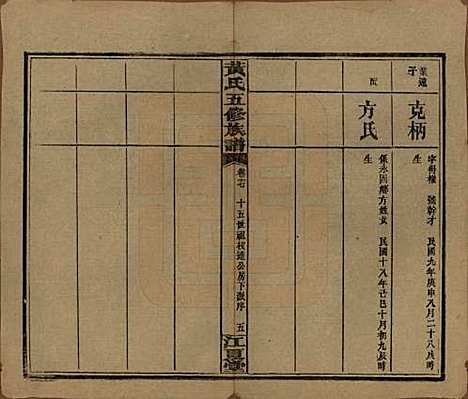 業遠子
克柄
字斟權 號幹才 民國九年庚申八月二十八辰時
生
配
方氏
係永固鄉方姓女 民國十八年己巳十月初九辰時
生
黃氏五修族譜
卷七 十五世祖 達公房下派序 五
江夏堂